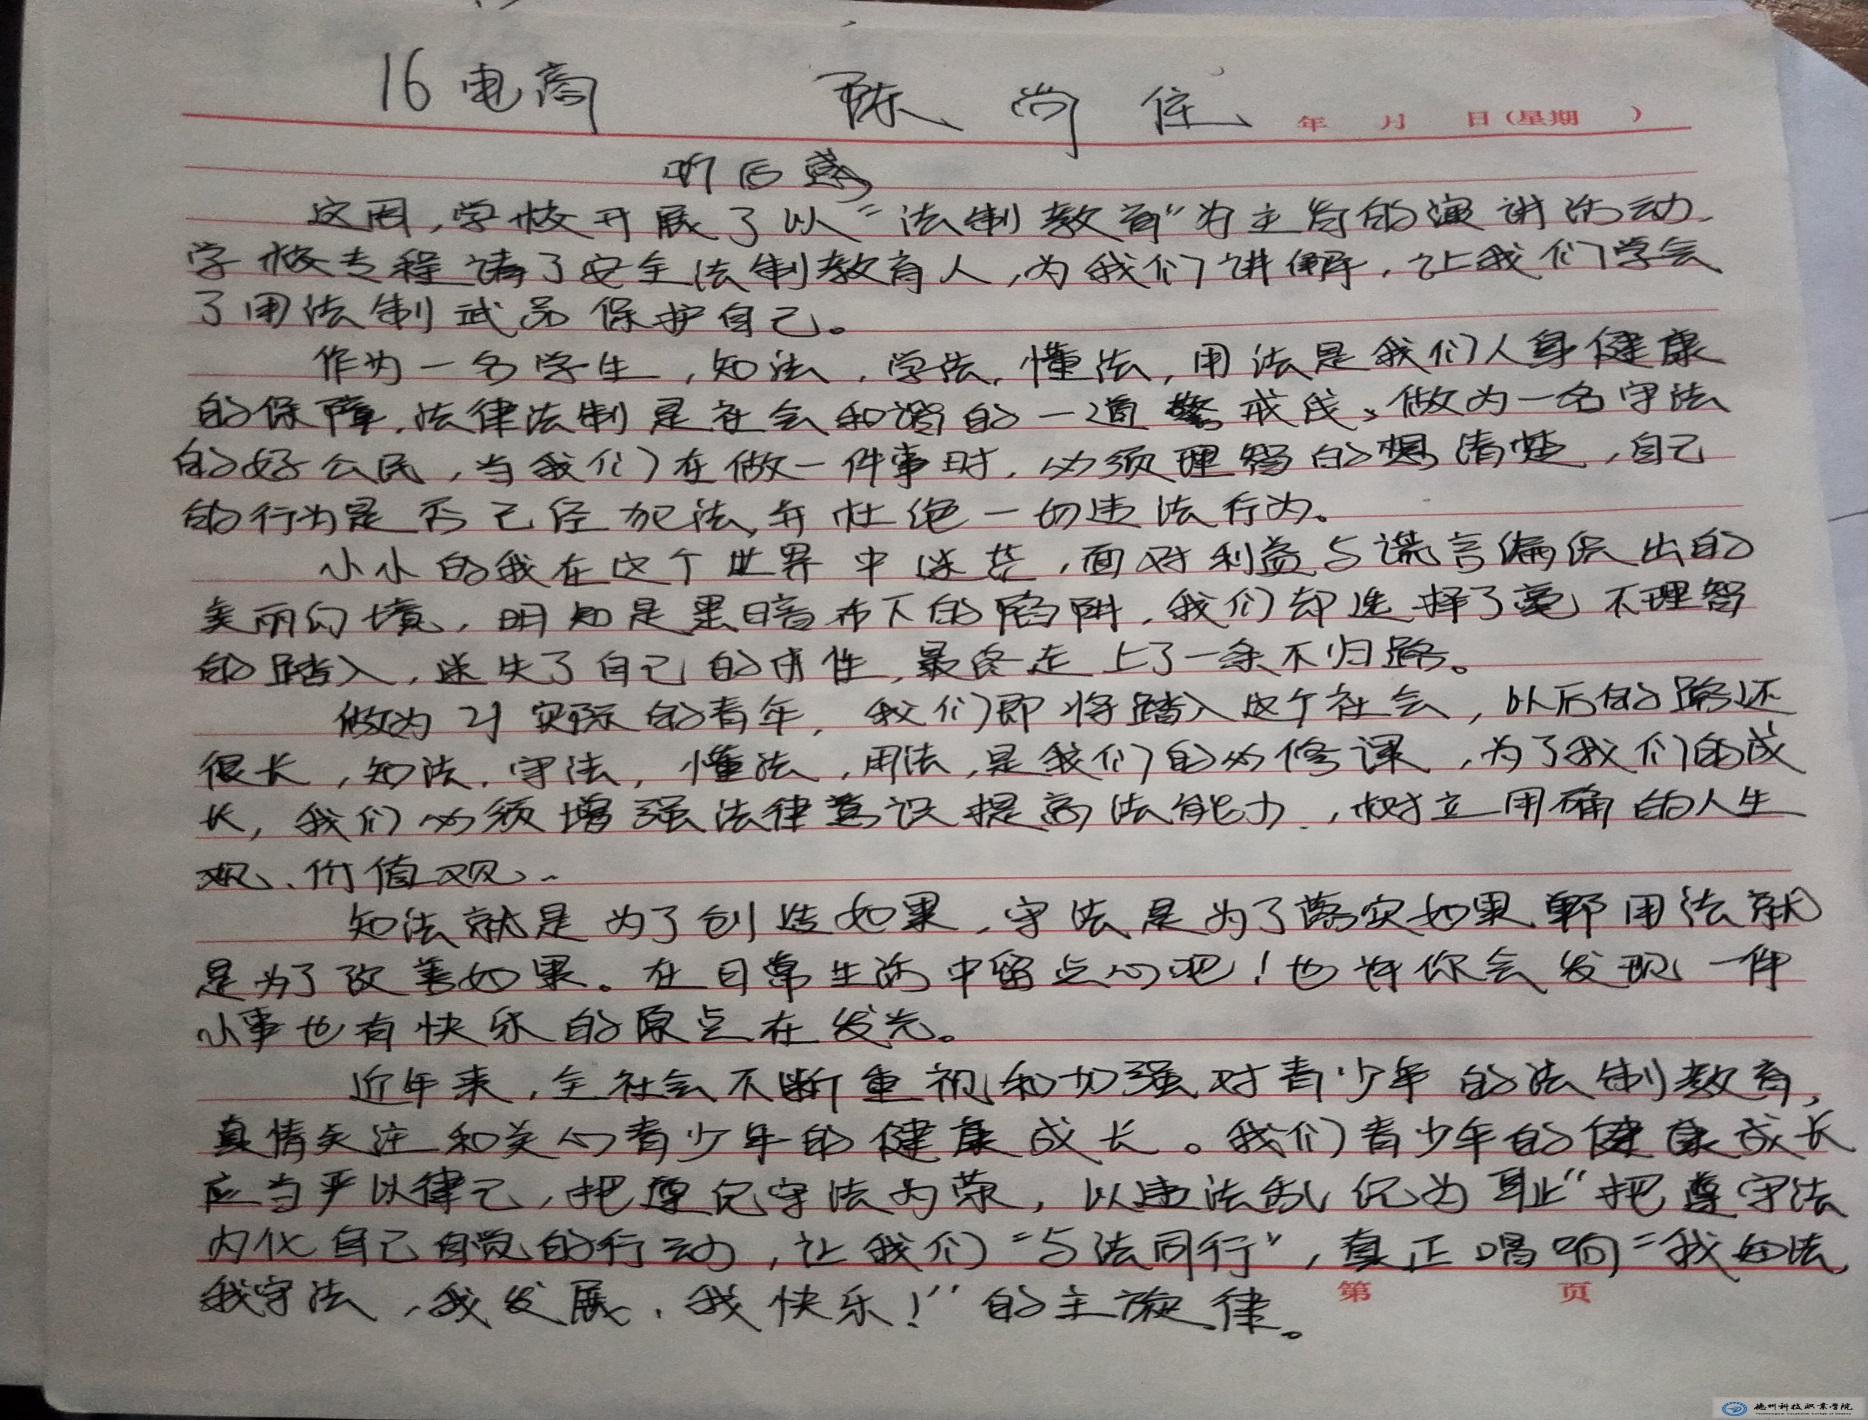 16电商 陈尚住 年 月 日(星期 )
听后感
这周,学校开展了以“法制教育”为主旨的演讲活动.
学校专程请了安全法制教育人,为我们讲解,让我们学会
了用法制武器保护自己。
作为一名学生,知法,学法,懂法,用法是我们人身健康
的保障.法律法制是社会和谐的一道警戒线、做为一名守法
的好公民,当我们在做一件事时,必须理智的想清楚,自己
的行为是否已经犯法,并杜绝一切违法行为。
小小的我在这个世界中迷茫,面对利益与谎言偏织出的
美丽幻境,明知是黑暗布下的陷阱,我们却选择了毫不理智
的踏入,迷失了自己的本性,最终走上了一条不归路。
做为21实际的青年,我们即将踏入这个社会,以后的路还
很长,知法,守法,懂法,用法,是我们的必修课,为了我们的成
长,我们必须增强法律意识提高法能力,树立用确的人生
观、价值观.
知法就是为了创造如果,守法是为了落实如果,用法就
是为了改善如果。在日常生活中留点心吧!也许你会发现一件
小事也有快乐的原点在发光。
近年来,全社会不断重视和加强对青少年的法制教育,
真情关注和关心青少年的健康成长。我们青少年的健康成长
应当严以律己,把遵纪守法为荣,以违法乱纪为耻”把遵守法
内化自己自觉的行动,让我们“与法同行”,真正唱响“我知法,
我守法,我发展,我快乐!”的主旋律。
第 页
德州科技职业学院